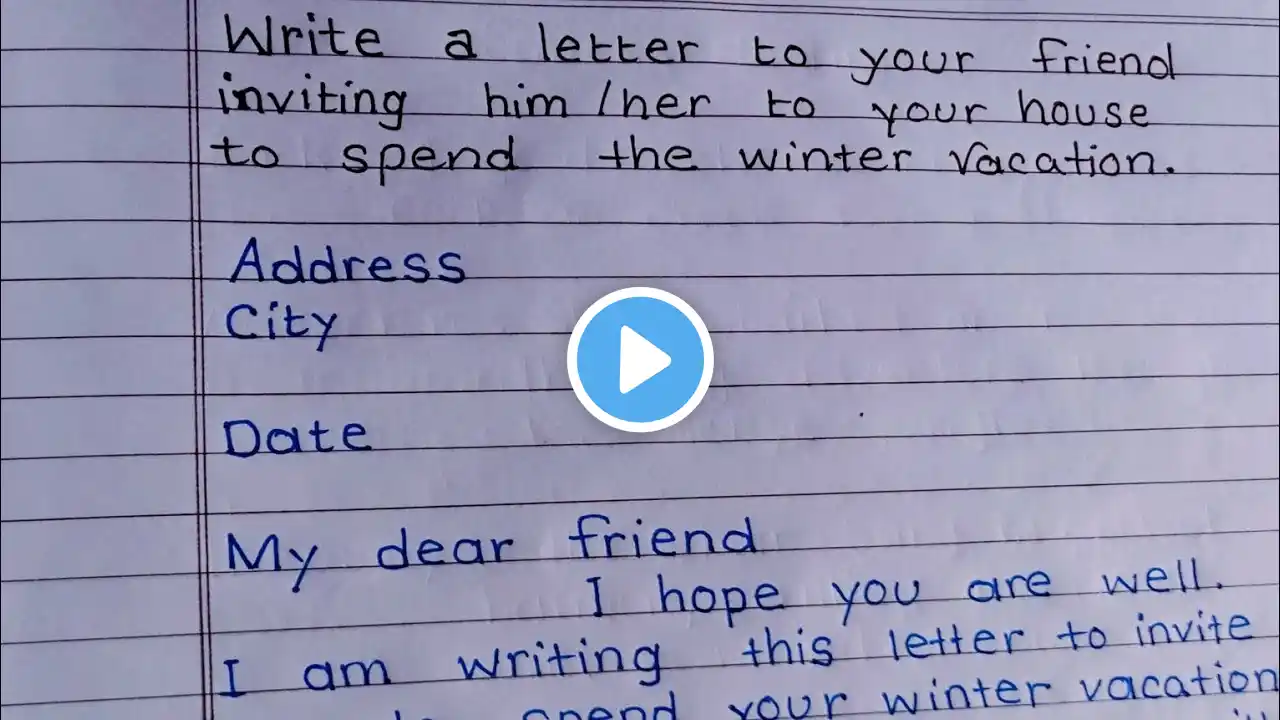 Write a letter to your friend
inviting him/her to your house
to spend the winter vacation.
Address
City
Date
My dear friend
I hope you are well.
I am writing this letter to invite
spend your winter vacation